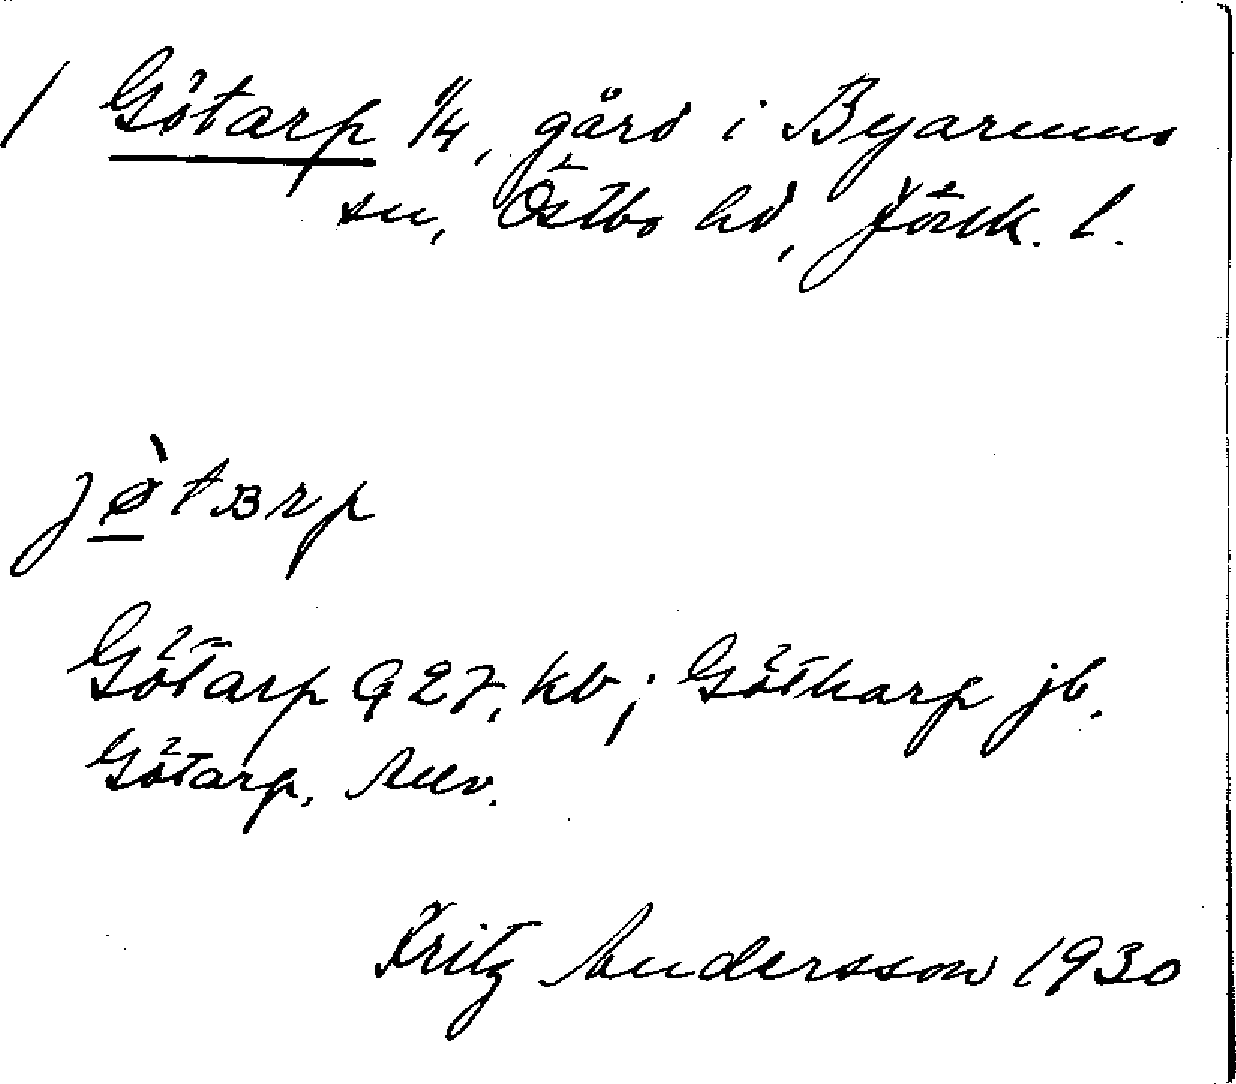 / Götarp 1/4, gård i Byarums
sn, Östbo hd, Jönk. l.
jø̀tʙrp
Götarp G 27, kb; Götharp jb.
Götarp,
Fritz Andersson 1930